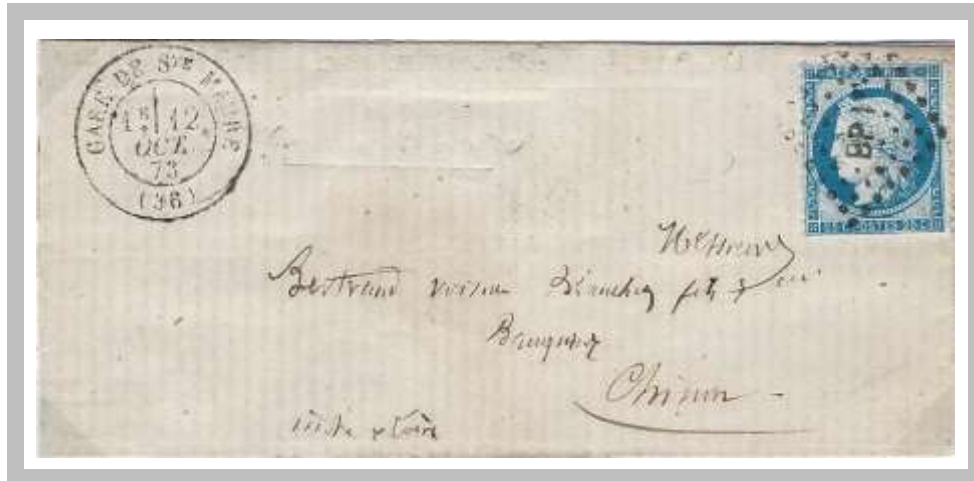 GARE DE STE MAURE
1E 12
OCT.
73
(36)
BP 1
25 C POSTES 25 C
Messieurs
Bertrand voisine Blanchez fils & cie
Banquiers
Chinon
indre & Loire